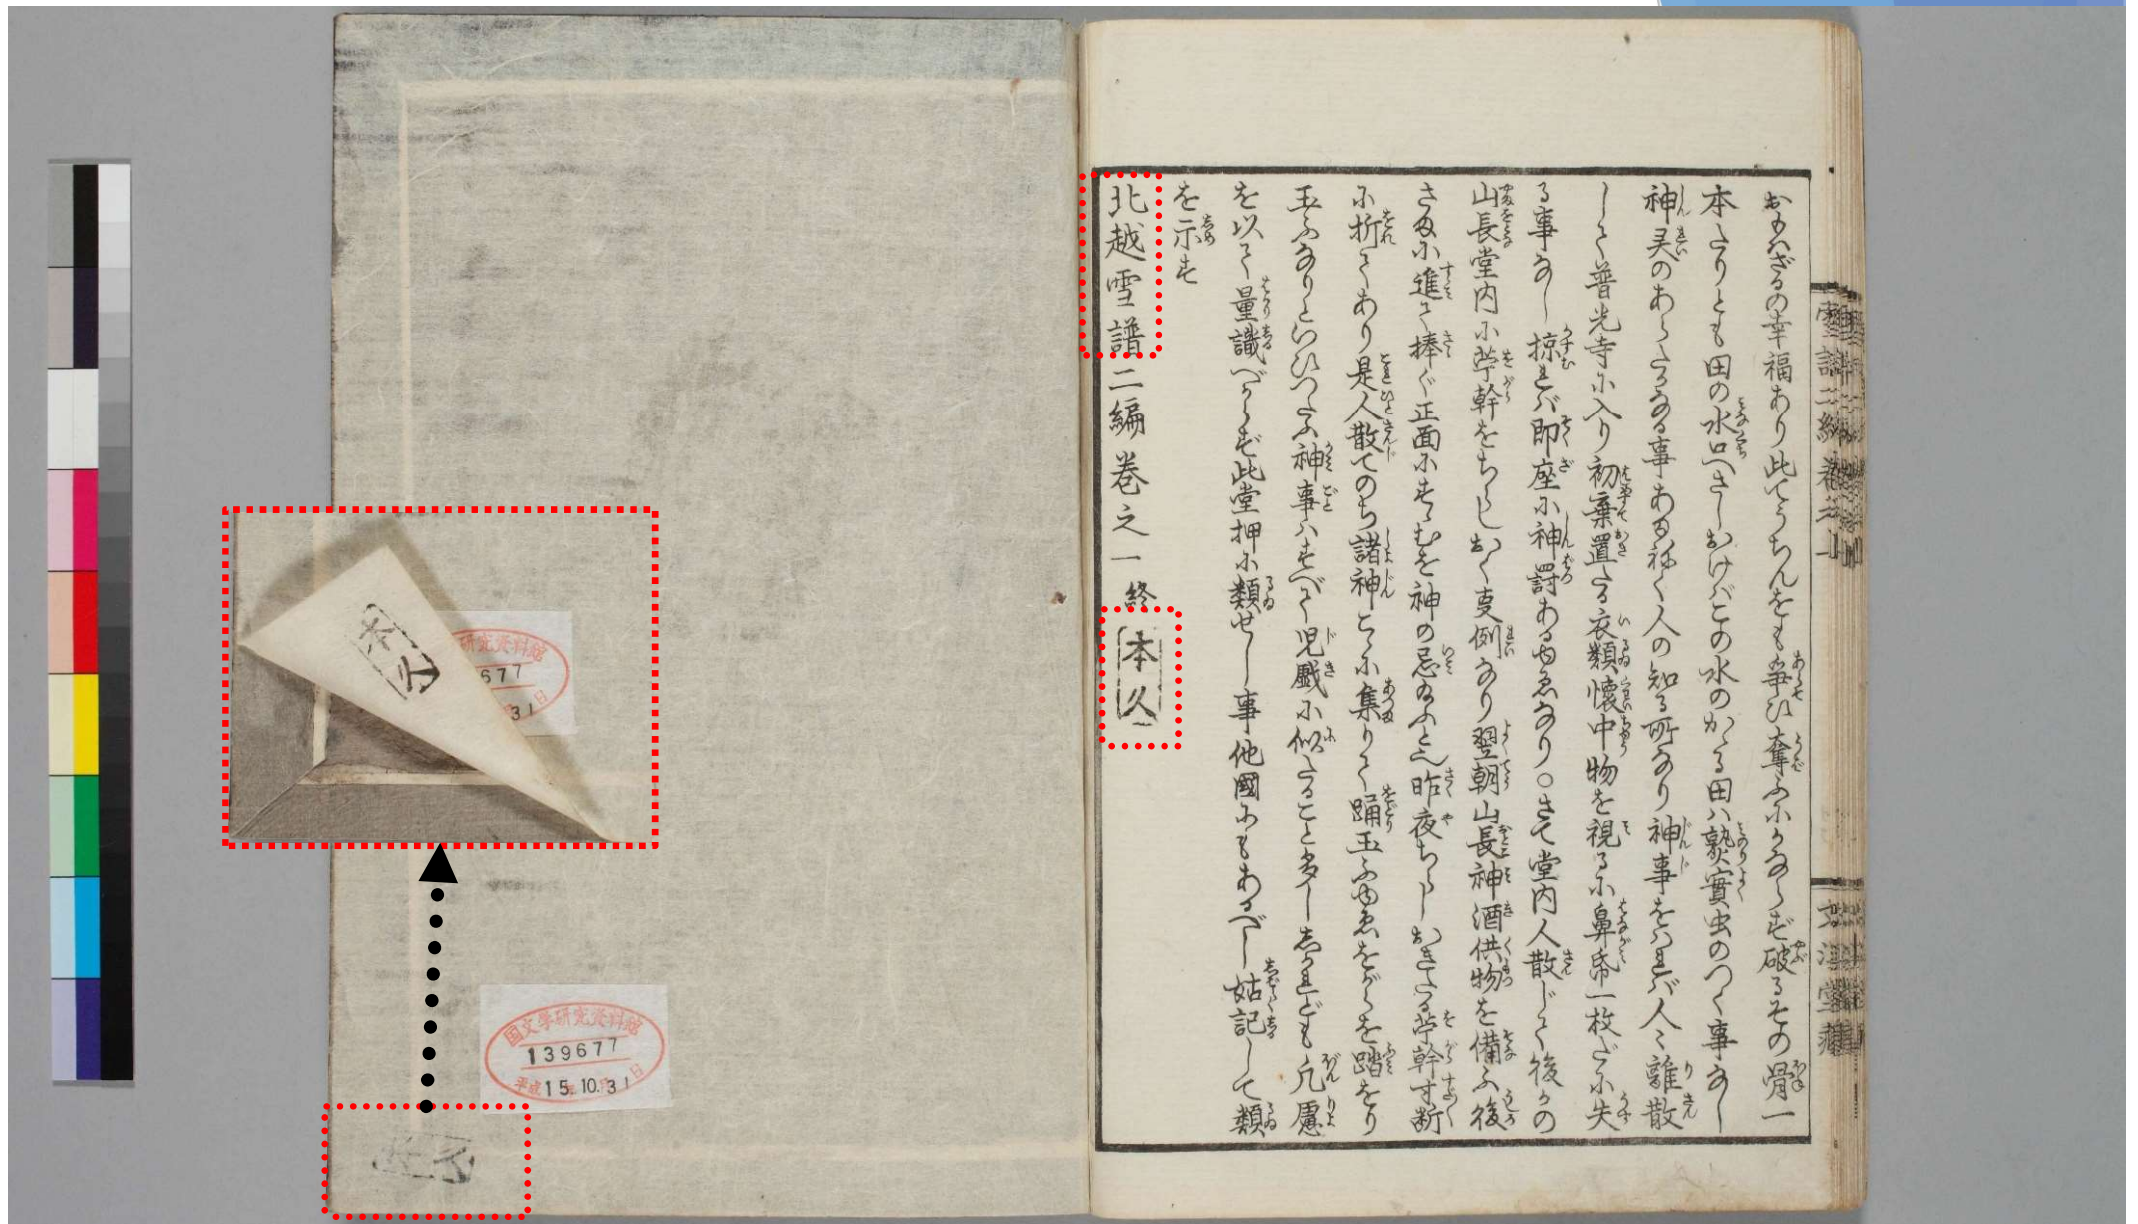 おもハざるの幸福あり此てうちんをも争ひ奪ふにかならず破るその骨一
本たりとも田の水口へさしおけばこの水のかゝる田ハ熟實虫のつく事なし
神灵のあらたなる事あまねく人の知る所なり神事をハれバ人々離散
して普光寺に入り初棄置たる衣類懐中物を視るに鼻帋一枚だに失
る事なし掠れバ即座に神罰あるゆゑなり○さて堂内人散じて後かの
山長堂内に苧幹をちらしおく㕝例なり翌朝山長神酒供物を備ふ後
さまに進て捧ぐ正面にすゝむを神の忌給ふと也昨夜ちらしおきたる苧幹寸断
に折てあり是人散てのち諸神こゝに集りて踊玉ふゆゑをがらを踏をり
玉ふなりといひつたふ神事ハすべて児戯に似たること多ししかれども凡慮
を以て量識べからず此堂押に類せし事他國にもあるべし姑記して類
を示す
北越雪譜二編巻之一終
本久
本久
国文学研究資料館
139677
平成15年10月31日
本久